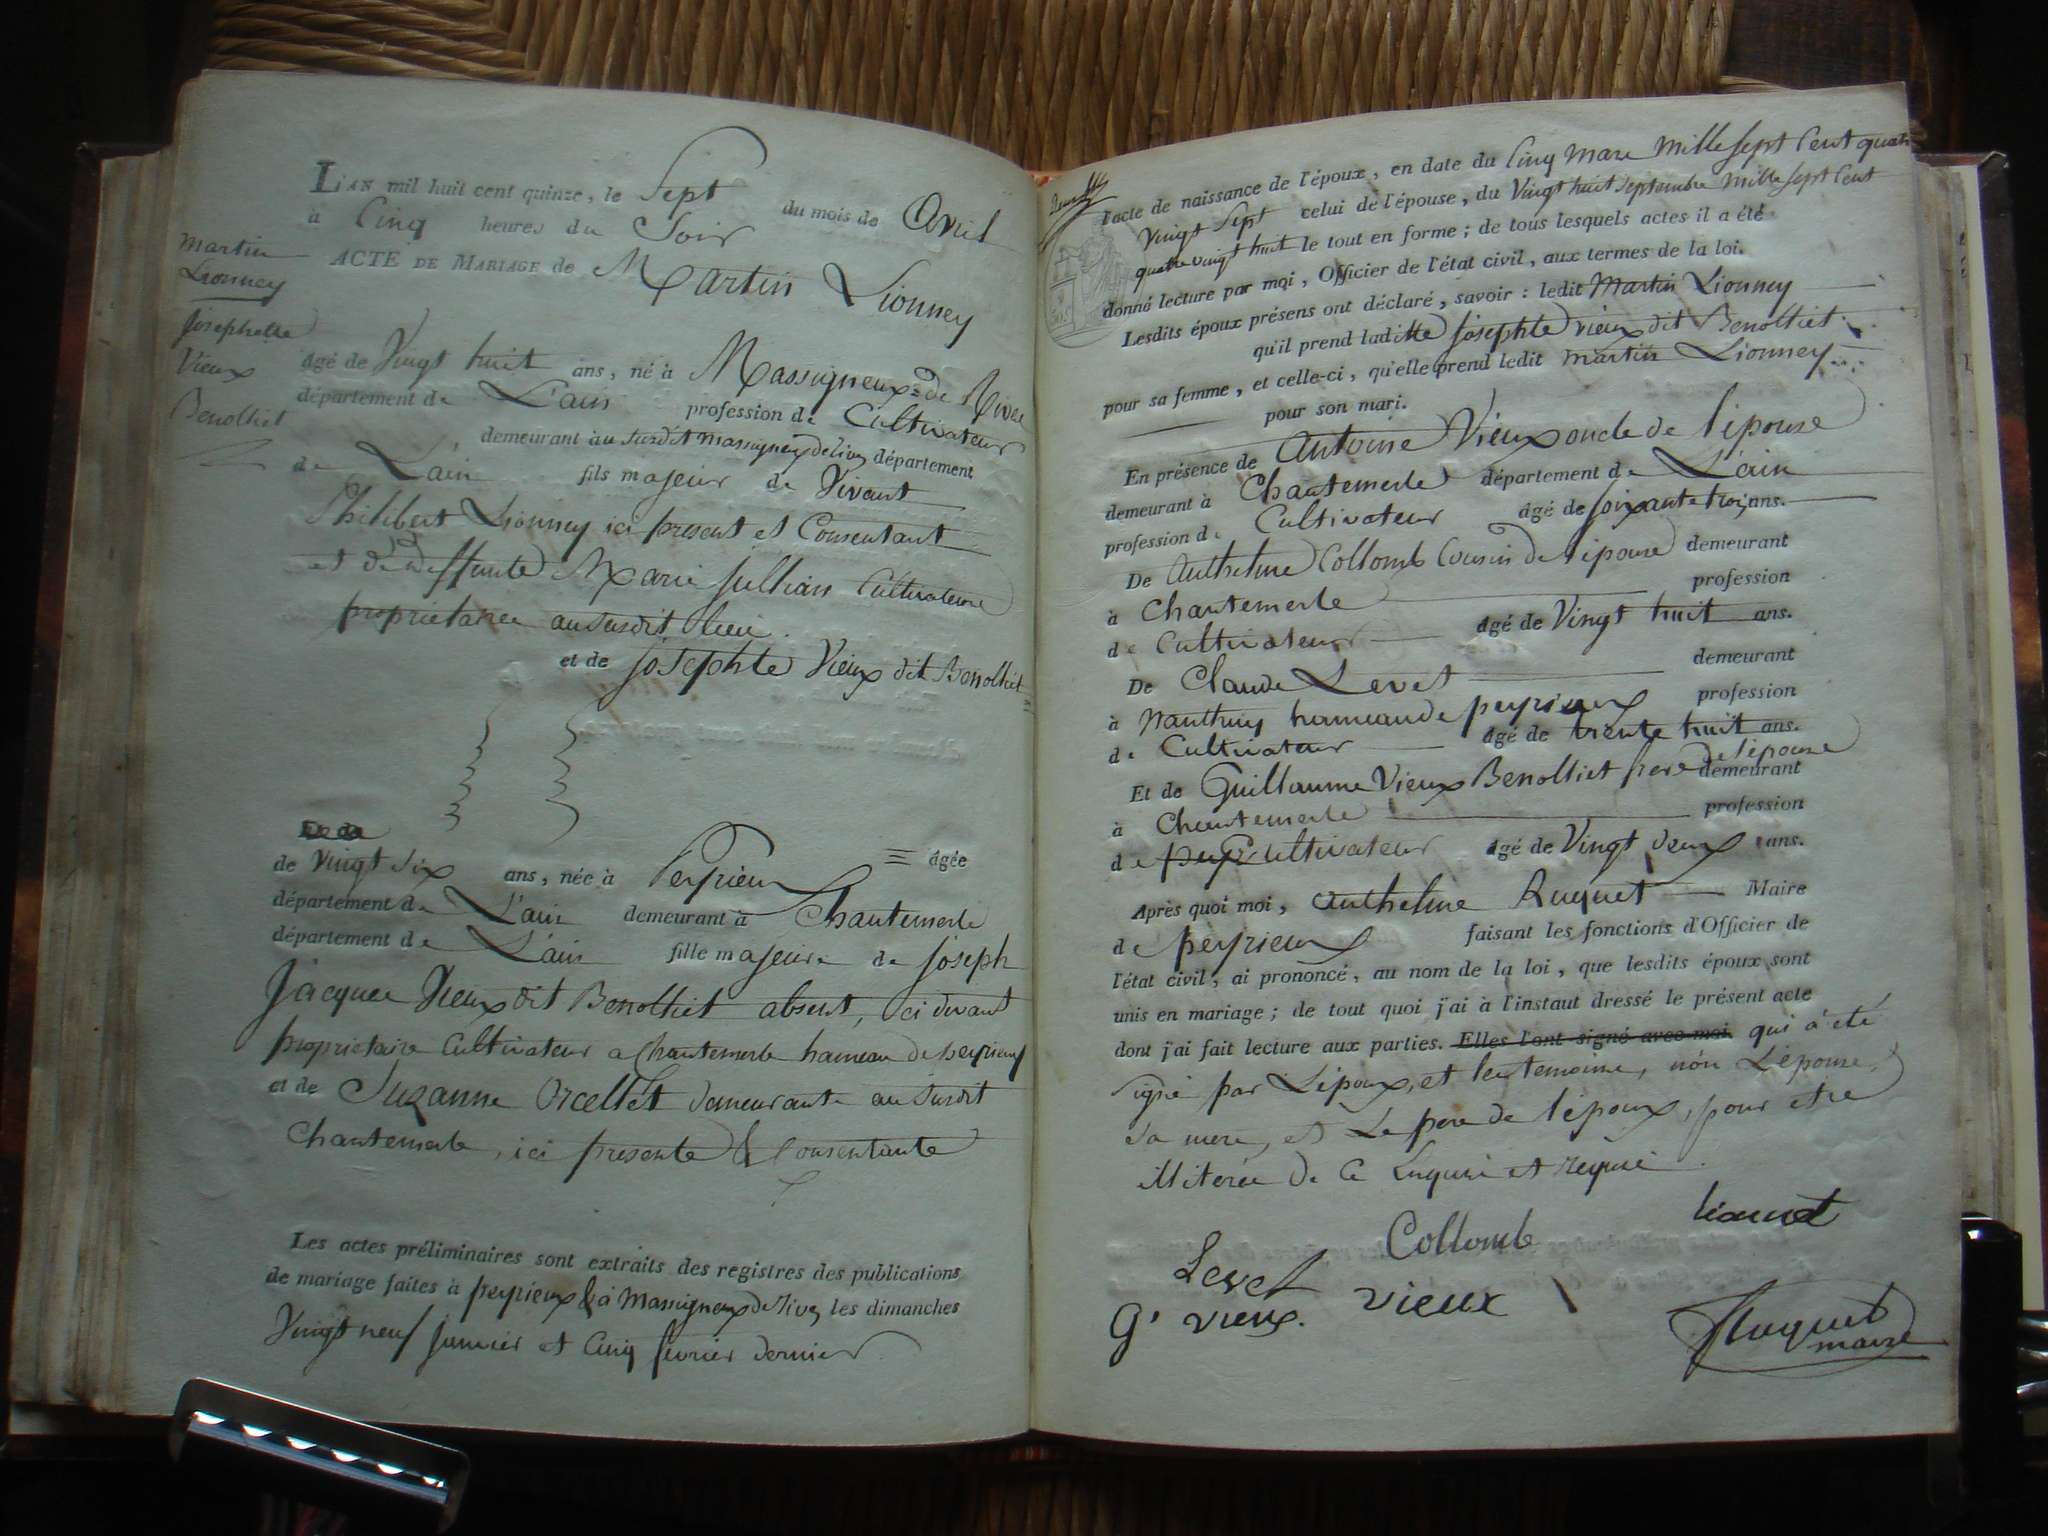 L'AN mil huit cent quinze, le Sept du mois de Avril
à Cinq heures du Soir
ACTE DE MARIAGE de Martin Lionney
Martin
Lionney
Josephette
Vieux
Benolliet
agé de Vingt huit ans, né à Massigneux de Rives
département de L'ain profession de Cultivateur
demeurant au susdit massigneux de rives département
de L'ain fils majeur de Vivant
Philibert Lionney ici present et Consentant
et de deffunte Marie Jullian Cultivateurs
proprietaires au susdit lieu.
et de Josephte Vieux dit Benolliet
Et de
agée
de Vingt Six ans, née à Peyrieux
département de L'ain demeurant à Chantemerle
département de L'ain fille majeure de Joseph
Jacques Vieux dit Benolliet absent, ci devant
proprietaire Cultivateur a Chantemerle hameau de peyrieux
et de Suzanne Orcellet demeurante au Susdit
Chantemerle, ici presente & Consentante
Les actes préliminaires sont extraits des registres des publications
de mariage faites à peyrieux & à Massigneux de rives les dimanches
Vingt neuf janvier et Cinq fevrier dernier
l'acte de naissance de l'époux, en date du Cinq mars mille sept Cent quatre
Vingt Sept celui de l'épouse, du Vingt huit septembre mille sept Cent
quatre vingt huit le tout en forme; de tous lesquels actes il a été
donné lecture par moi, Officier de l'état civil, aux termes de la loi.
Lesdits époux présens ont déclaré, savoir: ledit Martin Lionney
qu'il prend ladite Josephte vieux dit Benolliet
pour sa femme, et celle-ci, qu'elle prend ledit martin Lionney
pour son mari.
En présence de Antoine Vieux oncle de l'épouse
demeurant à Chantemerle département de L'ain
profession de Cultivateur agé de soixante trois ans.
De Anthelme Collomb Cousin de l'épouse demeurant
à Chantemerle profession
de Cultivateur agé de Vingt huit ans.
De Claude Levet demeurant
à Nanthuy hameau de peyrieux profession
de Cultivateur agé de trente huit ans.
Et de Guillaume Vieux Benolliet frere de l'épouse demeurant
à Chantemerle profession
de Cultivateur agé de Vingt deux ans.
Après quoi moi, anthelme Ruquet Maire
de peyrieux faisant les fonctions d'Officier de
l'état civil, ai prononcé, au nom de la loi, que lesdits époux sont
unis en mariage; de tout quoi j'ai à l'instant dressé le présent acte
dont j'ai fait lecture aux parties. Elles l'ont signé avec moi qui a été
signé par L'époux, et les temoins, non L'épouse,
sa mere, et Le pere de l'époux, pour etre
illiterés de ce Enquis et requis
Collomb
Levet
G' vieux. vieux
Ruquet
maire